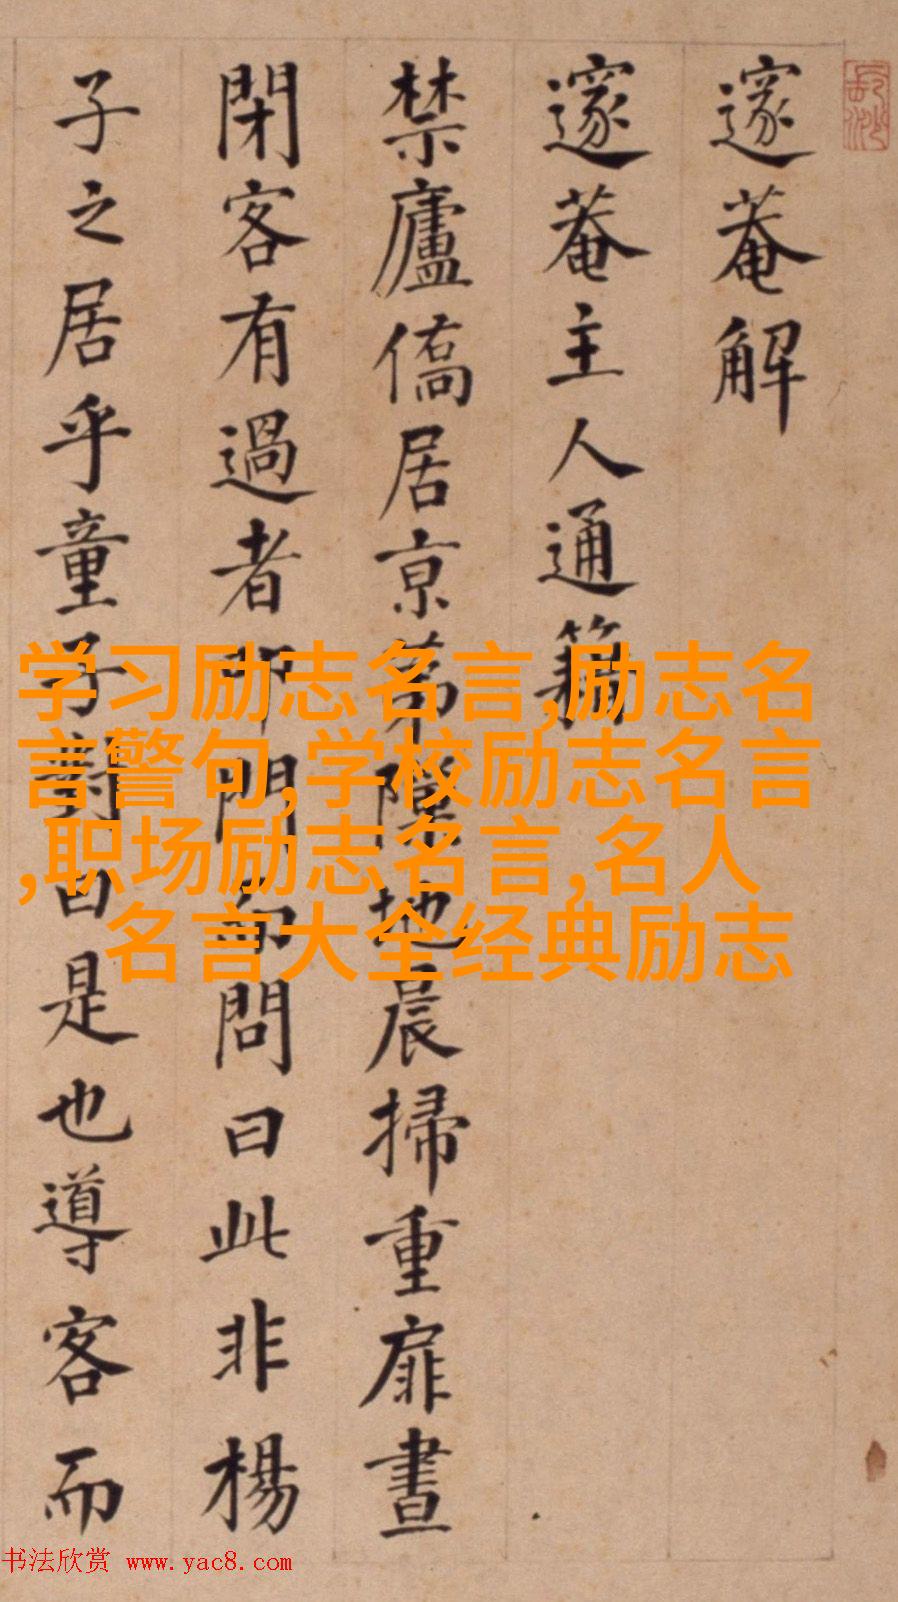 邃菴解
邃菴主人通籍
禁廬僑居京第隙地晨掃重扉晝
閉客有過者叩門而問曰此非楊
子之居乎童子對曰是也導客而
学习励志名言,励志名
言警句,学校励志名言
,职场励志名言,名人
名言大全经典励志
书法欣赏 www.yac8.com